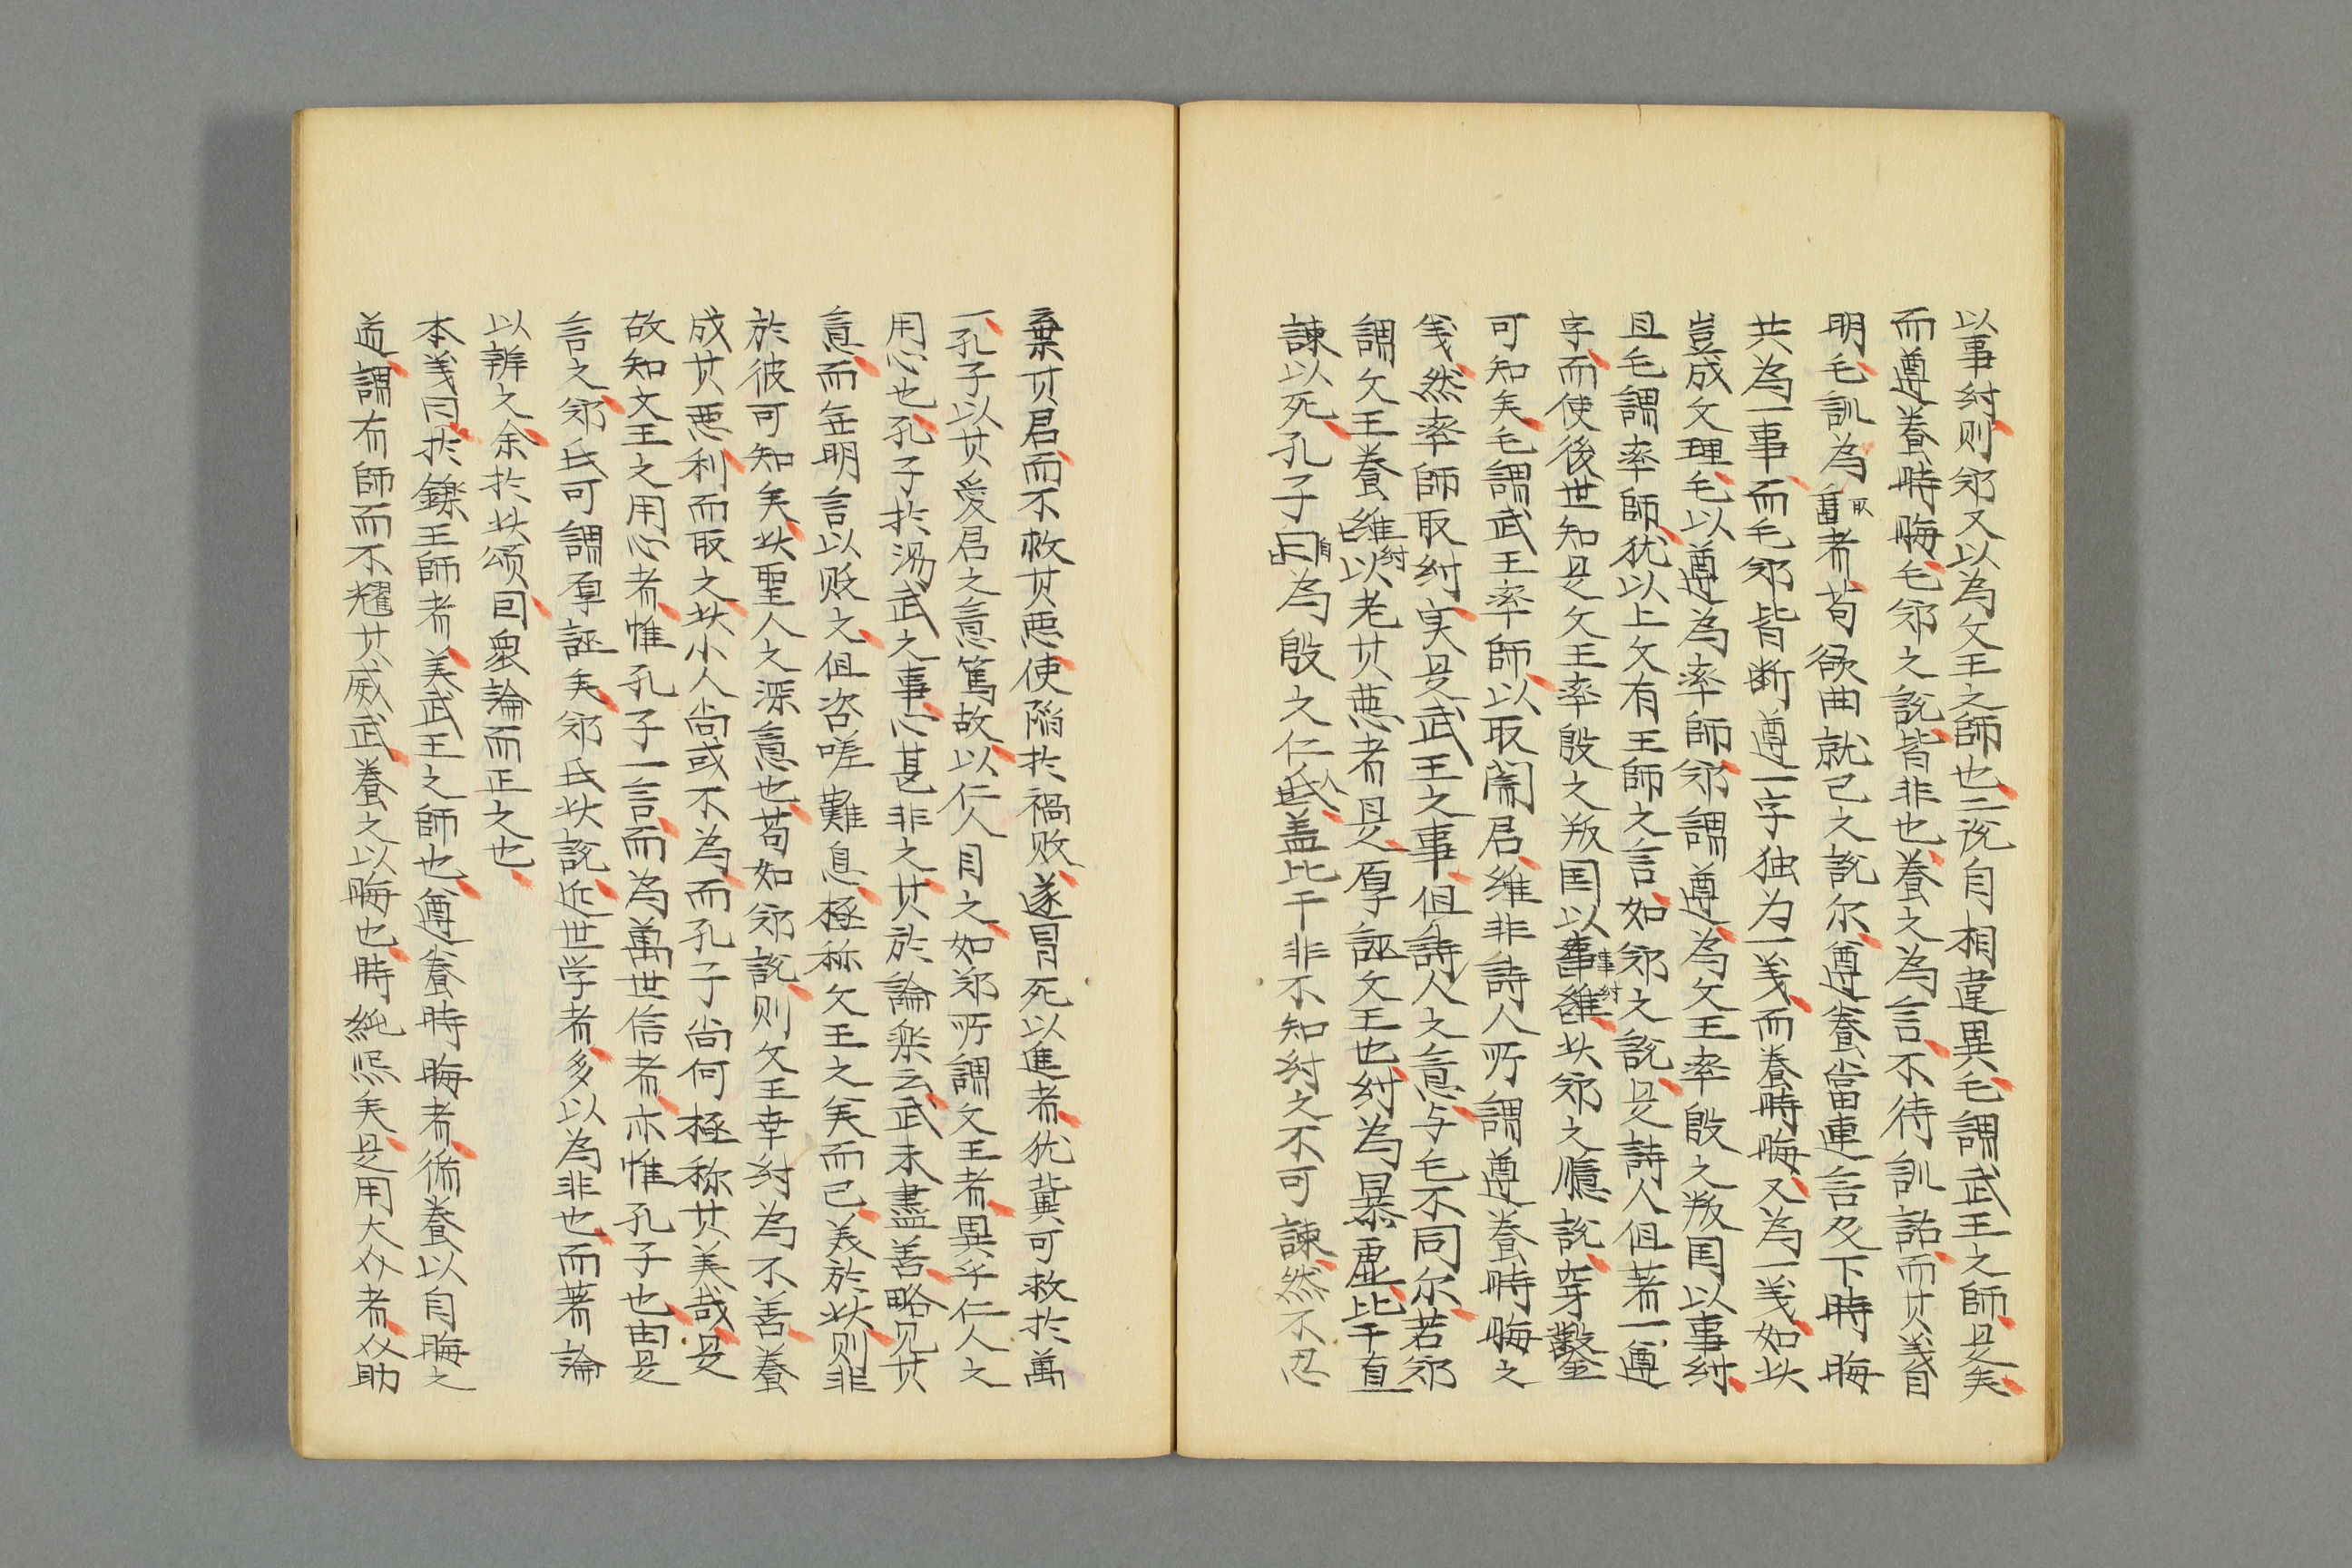 以事紂则郑又以為文王之師也二说自相違異毛謂武王之師是矣
而遵養時晦毛郑之說皆非也養之為言不待訓詁而其義自
明毛訓為取者苟欲曲就己之說尔遵養當連言及下時晦
共為一事而毛郑皆断遵一字独为一義而養時晦又為一義如此
豈成文理毛以遵為率師郑謂遵為文王率殷之叛国以事紂
且毛謂率師犹以上文有王師之言如郑之說是詩人但著一遵
字而使後世知是文王率殷之叛国以事紂此郑之臆說穿鑿
可知矣毛謂武王率師以取闇君維非詩人所謂遵養時晦之
義然率師取紂实是武王之事但詩人之意与毛不同尔若郑
謂文王養紂以老其悪者是厚誣文王也紂為暴虐比干直
諫以死孔子自為殷之仁人盖比干非不知紂之不可諫然不忍
棄其君而不救其悪使陷於禍败遂冒死以進者犹冀可救於萬
一孔子以其愛君之意篤故以仁人目之如郑所謂文王者異乎仁人之
用心也孔子於湯武之事心甚非之其於論樂云武未盡善略见其
意而無明言以貶之但咨嗟難息極称文王之美而已義於此则非
於彼可知矣此聖人之深意也苟如郑說则文王幸紂為不善養
成其悪利而取之此小人尚或不為而孔子尚何極称其美哉是
故知文王之用心者惟孔子一言而為萬世信者亦惟孔子也由是
言之郑氏可謂厚誣矣郑氏此說近世学者多以為非也而著論
以辨之余於此頌因衆論而正之也
本義曰於鑠王師者美武王之師也遵養時晦者循養以自晦之
道謂有師而不耀其威武養之以晦也時純熙矣是用大介者介助